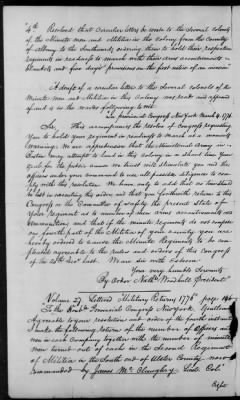 4th Resolved that Circular letters be wrote to the several Colonels
of the Minute men and Militia in this Colony from the County
of Albany to the Southward, ordering them to hold their respective
regiments in readiness to march with their arms accoutrements
blankets and five days provisions on the first notice of an invasion
A draft of a circular letter to the several Colonels of the
Minute men and Militia in this Colony was read and approved
of and is in the words following to wit
In Provincial Congress New York March 9. 1776
Sir, This accompanies the order of Congress requiring
you to hold your regiment in readiness to march on a moments
warning. We are apprehensive that the Ministerial Army in
Boston may attempt to land in this Colony in a short time Your
zeal for the public cause we doubt not will stimulate you and the
officers under your command to use all possible diligence to comply
with this resolution. We have only to add that no time should
be lost in executing this order and that you forthwith return to this
Congress or the Committee of safety the present state of
Your Regiment as to number of men arms accoutrements and
ammunition and that if the minute regiments do not
one fourth part of the Militia of your County you are
hereby ordered to cause the Minute Regiments to be
completed agreeable to the rules and orders of this Congress
of the 20th last. We are Sir with Esteem
Your very humble Servants
By Order Nathl. Woodhull President
Volume 27 Labeled Military Returns 1776 page 146
To the Honble Provincial Congress New York Gentlemen
Agreeable to your resolution and order of the fourth instant
I make the following return of the number of officers and
men in each Company together with the number of minute
men turned out of each in the Second Regiment
of Militia in the South end of Ulster County now
commanded by James McClaughry Lieut Coll